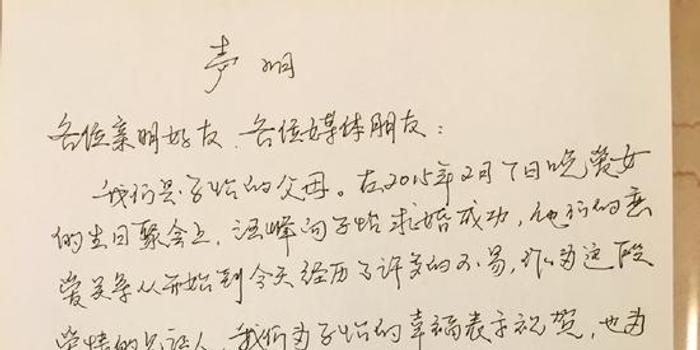 声明
各位亲朋好友、各位媒体朋友：
我们是子怡的父母。在2015年2月7日晚爱女
的生日聚会上，汪峰向子怡求婚成功，他们的恋
爱关系从开始到今天经历了许多的不易，作为这段
爱情的见证人，我们为子怡的幸福表示祝贺，也为